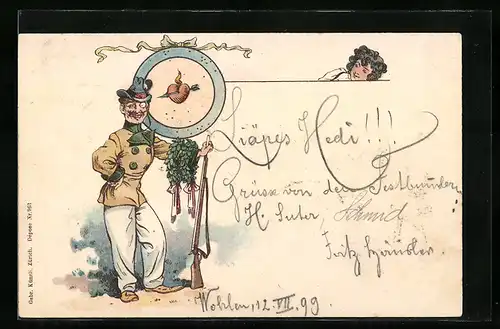 Liäpes Hedi!!!
Grüsse von den Festbundern
H. Suter, Schmid
Fritz
Wohlen, 12. VII. 99
Gebr. Künzli, Zürich. Dépose. Nr.